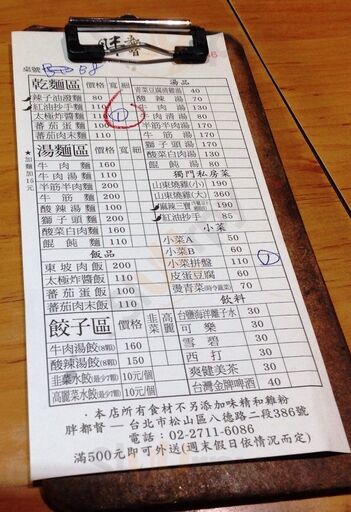 胖齋
桌號
乾麵區 價格 寬 細
辣子油潑麵 80
紅油抄手麵 90
太極炸醬麵 110
蕃茄蛋麵 100
蕃茄肉末麵 110
湯麵區 價格 寬 細
★加麵加10元
牛肉麵 160
牛肉湯麵 110
半筋半肉麵 200
牛筋麵 200
酸辣湯麵 110
獅子頭麵 110
酸菜白肉麵 160
餛飩麵 110
飯品
東坡肉飯 200
太極炸醬飯 110
蕃茄蛋飯 100
蕃茄肉末飯 110
餃子區 價格 韭菜 高麗
牛肉湯餃(8顆) 160
酸辣湯餃(8顆) 150
韭菜水餃(最少7顆) 10元/個
高麗菜水餃(最少7顆) 10元/個
湯品
青菜豆腐燒雞湯 40
酸辣湯 70
牛肉湯 130
牛肉清湯 80
半筋半肉湯 170
牛筋湯 170
獅子頭湯 80
酸菜白肉湯 130
餛飩湯 80
獨門私房菜
山東燒雞(小) 190
山東燒雞(大) 360
麻辣三寶 190
紅油抄手 85
小菜
小菜A 50
小菜B 60
小菜拼盤 110
皮蛋豆腐 60
燙青菜(時令蔬菜) 70
飲料
台鹽海洋離子水 30
可樂 30
雪碧 30
西打 30
爽健美茶 30
台灣金牌啤酒 40
·本店所有食材不另添加味精和雞粉
胖都督—台北市松山區八德路二段386號
電話:02-2711-6086
滿500元即可外送(週末假日依情況而定)